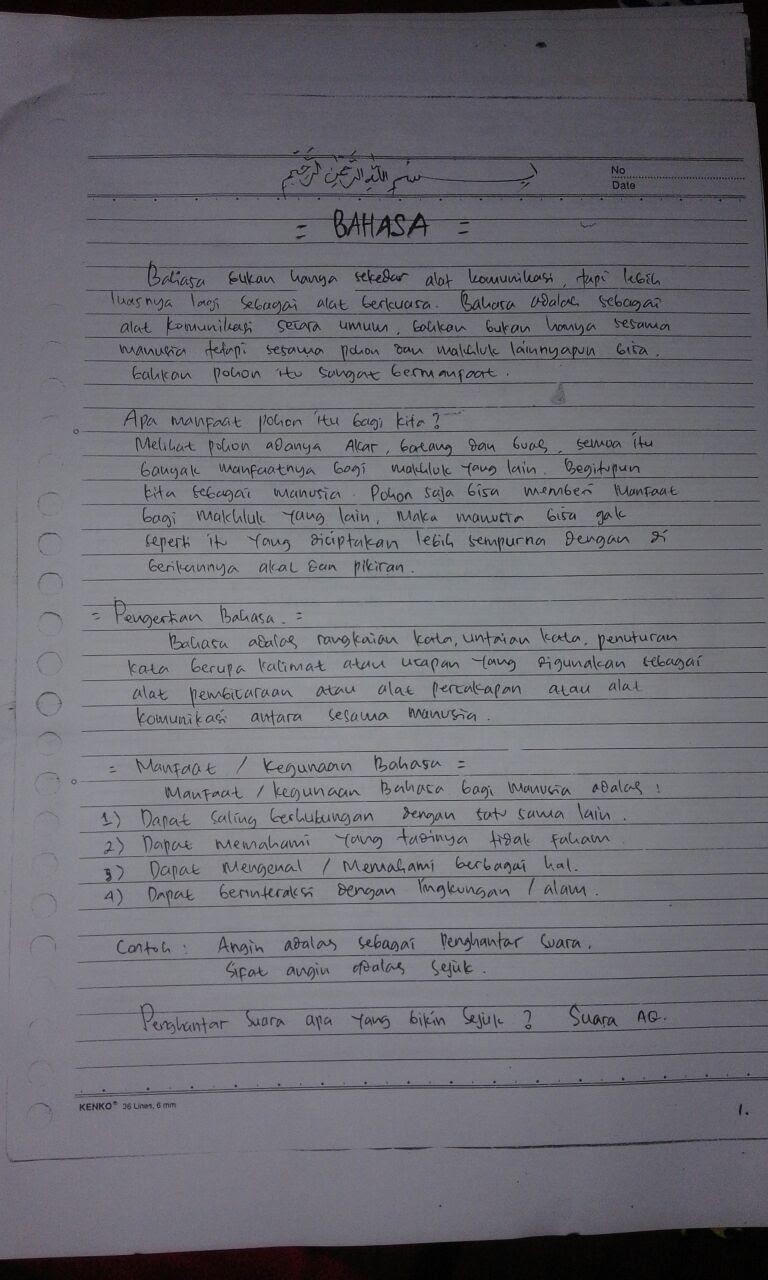 بسم الله الرحمن الرحيم
No
Date
= BAHASA =
Bahasa bukan hanya sekedar alat komunikasi, tapi lebih
luasnya lagi sebagai alat berkuasa. Bahasa adalah sebagai
alat komunikasi secara umum, bahkan bukan hanya sesama
manusia tetapi sesama pohon dan makhluk lainnyapun bisa.
bahkan pohon itu sangat bermanfaat.
Apa manfaat pohon itu bagi kita?
Melihat pohon adanya Akar, batang dan buah, semua itu
banyak manfaatnya bagi makhluk yang lain. Begitupun
kita sebagai manusia. Pohon saja bisa memberi Manfaat
bagi makhluk yang lain, Maka manusia bisa gak
seperti itu yang diciptakan lebih sempurna dengan di
berikannya akal dan pikiran.
= Pengertian Bahasa. =
Bahasa adalah rangkaian kata, untaian kata, penuturan
kata berupa kalimat atau ucapan yang digunakan sebagai
alat pembicaraan atau alat percakapan atau alat
komunikasi antara sesama manusia.
= Manfaat / Kegunaan Bahasa =
Manfaat / kegunaan Bahasa bagi Manusia adalah :
1) Dapat saling berhubungan dengan satu sama lain.
2) Dapat Memahami yang tadinya tidak faham.
3) Dapat Mengenal / Memahami berbagai hal.
4) Dapat berinteraksi dengan lingkungan / alam.
Contoh : Angin adalah sebagai Penghantar suara.
Sifat angin adalah sejuk.
Penghantar Suara apa yang bikin sejuk ? Suara AQ.
KENKO® 36 Lines, 6 mm
1.